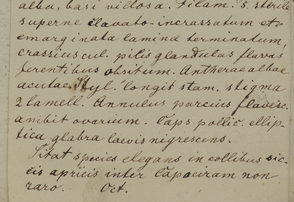 alba, basi villosa. Filam. 5. sterile
superne clavato-incrassatum et
emarginata lamina terminatum,
crassiuscul. pilis glandulas flavas
ferentibus obsitum. Antherae albae
acutae. Styl. longit. stam. stigma
2 lamell. Annulus parcius flavesc.
ambit ovarium. Caps. pollic. ellip-
tica glabra laevis nigrescens.
Stat species elegans in collibus sic-
cis apricis inter Capoeiram non
raro. Oct.